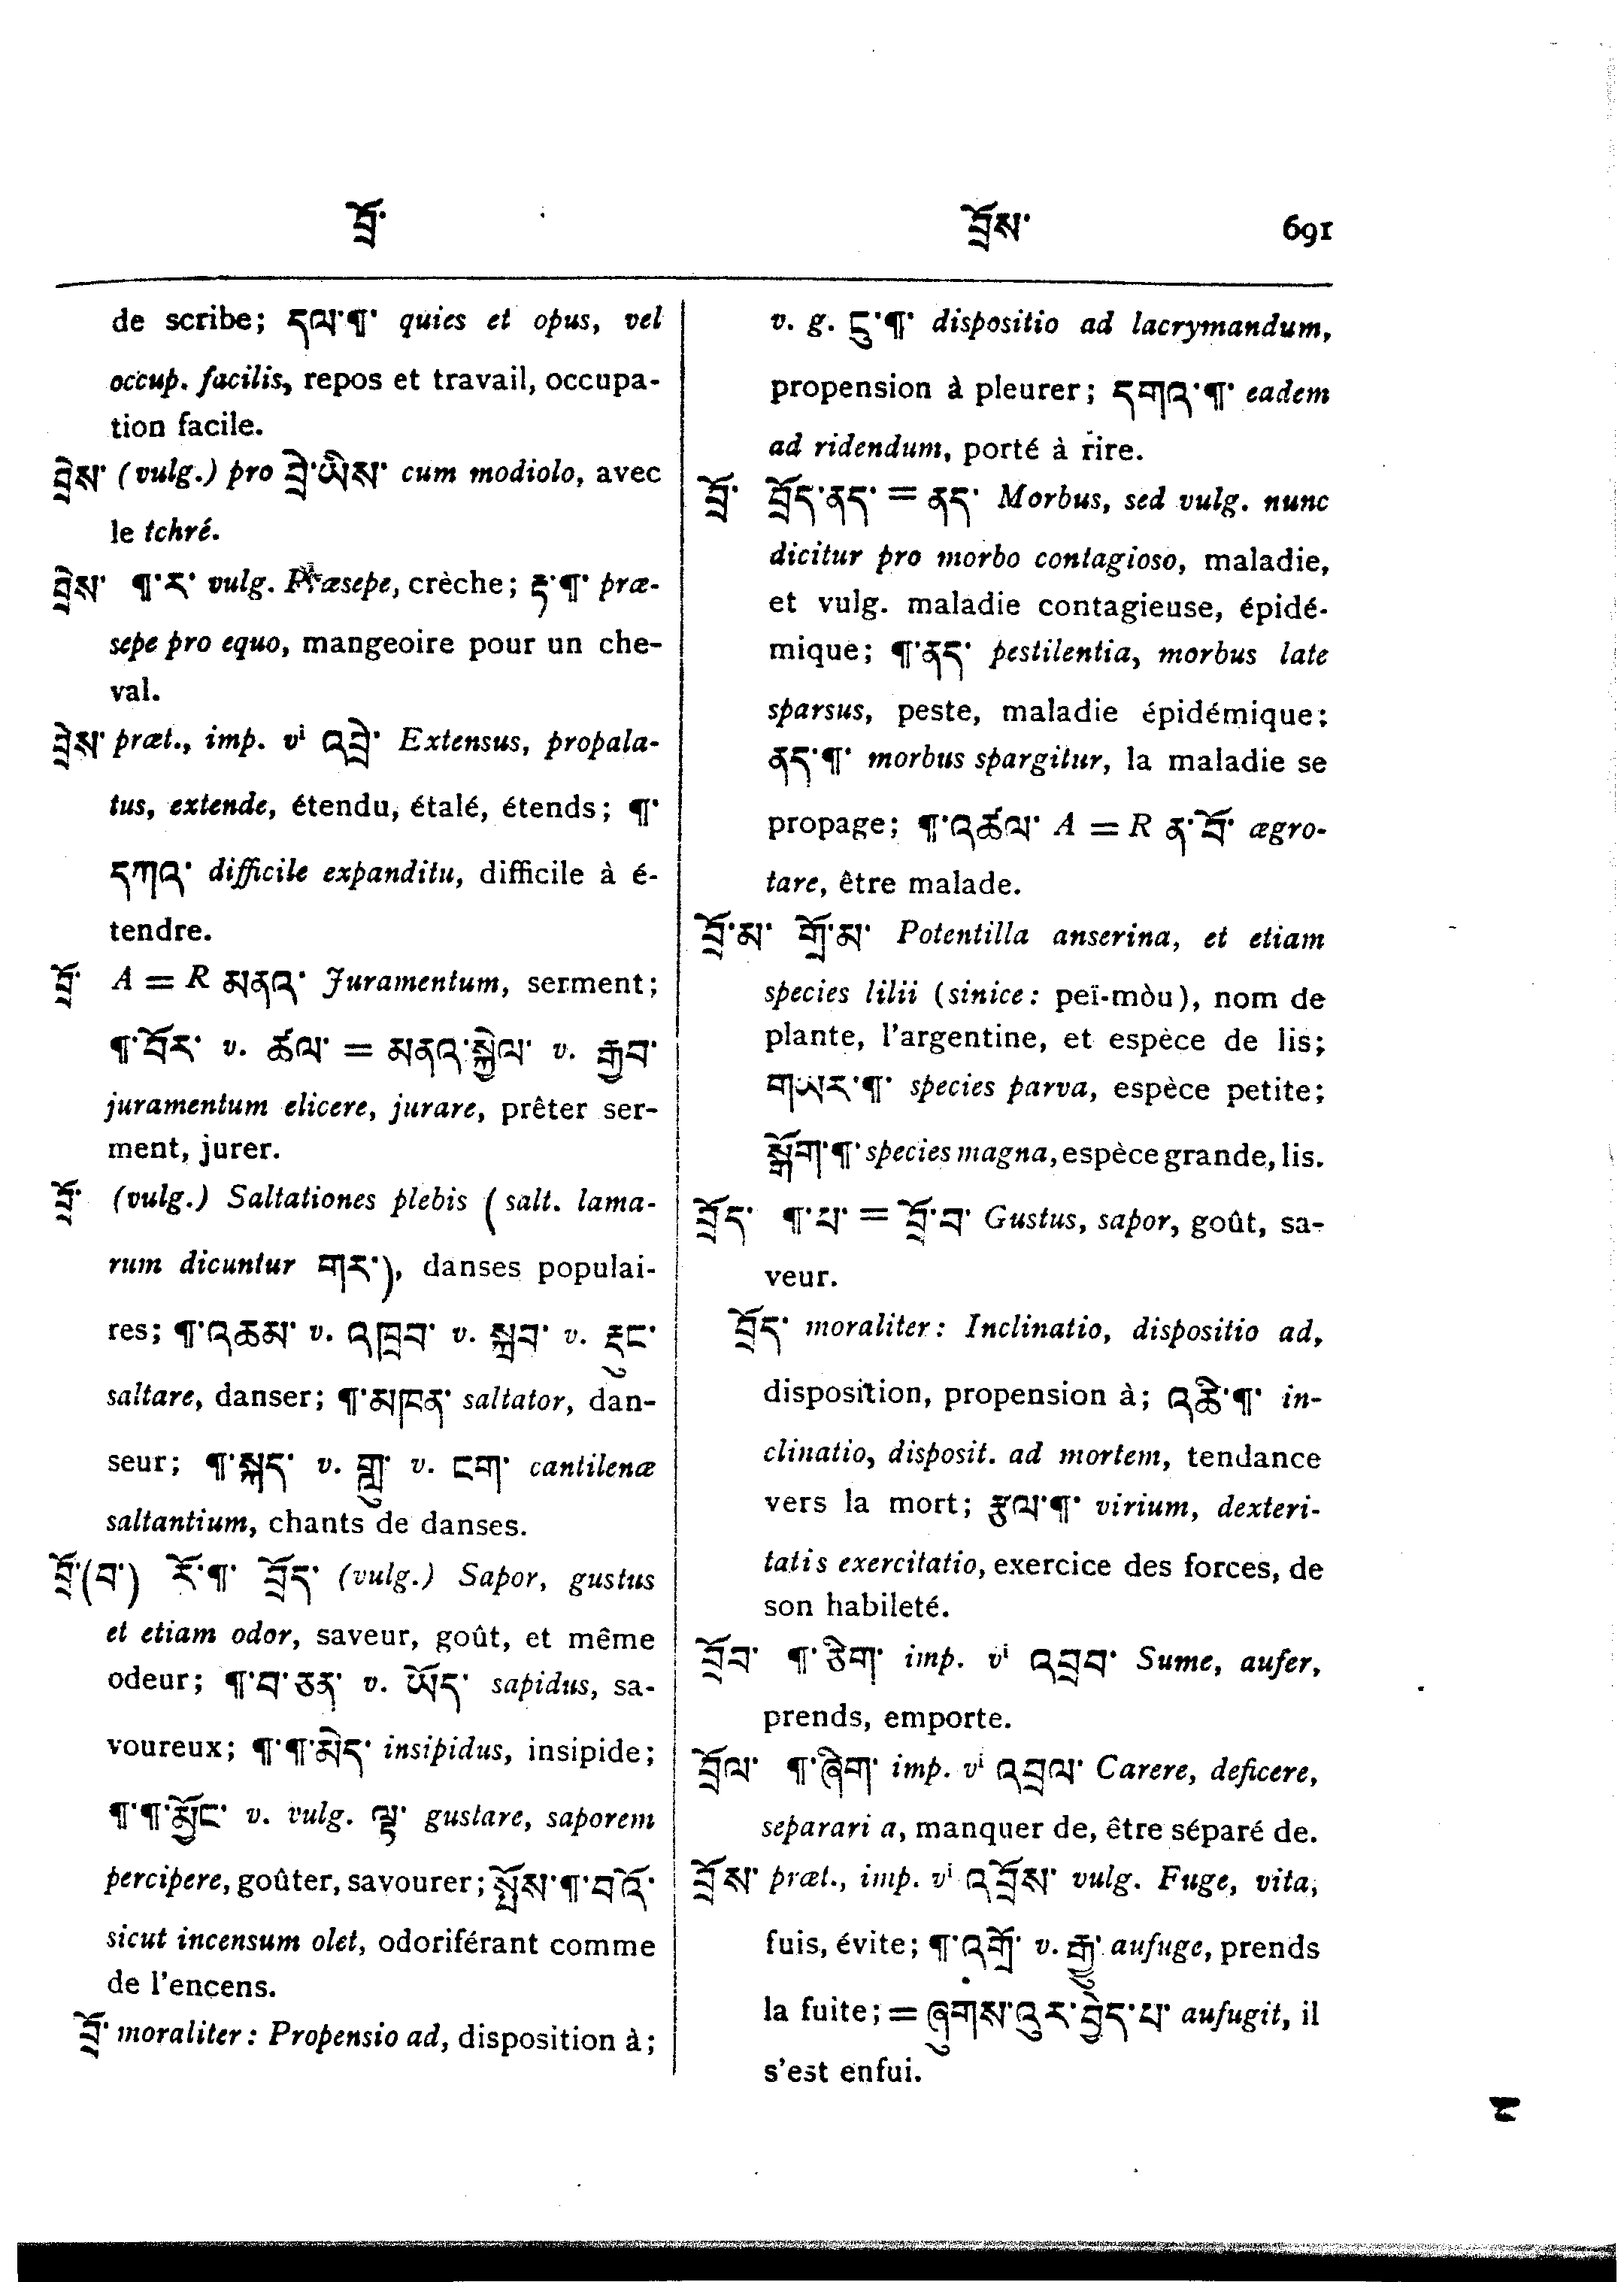 བྲོ་ བྲོས་ 691
de scribe; དལ་¶་ quies et opus, vel
occup. facilis, repos et travail, occupa-
tion facile.
བྲེས་ (vulg.) pro བྲེ་ཡིས་ cum modiolo, avec
le tchré.
བྲེས་ ¶་ར་ vulg. Præsepe, crèche; རྟ་¶་ præ-
sepe pro equo, mangeoire pour un che-
val.
བྲེས་ præt., imp. vⁱ འབྲེ་ Extensus, propala-
tus, extende, étendu, étalé, étends; ¶་
དཀའ་ difficile expanditu, difficile à é-
tendre.
བྲོ་ A = R མནའ་ Juramentum, serment;
¶་བོར་ v. ཚལ་ = མནའ་སྐྱེལ་ v. རྒྱབ་
juramentum elicere, jurare, prêter ser-
ment, jurer.
བྲོ་ (vulg.) Saltationes plebis (salt. lama-
rum dicuntur གར་), danses populai-
res; ¶་འཆམ་ v. འཁྲབ་ v. སྐྲབ་ v. རྡུང་
saltare, danser; ¶་མཁན་ saltator, dan-
seur; ¶་སྐད་ v. གླུ་ v. ངག་ cantilenæ
saltantium, chants de danses.
བྲོ་(བ་) རོ་¶་ བྲོད་ (vulg.) Sapor, gustus
et etiam odor, saveur, goût, et même
odeur; ¶་བ་ཅན་ v. ཡོད་ sapidus, sa-
voureux; ¶་¶་མེད་ insipidus, insipide;
¶་¶་མྱོང་ v. vulg. ལྟ་ gustare, saporem
percipere, goûter, savourer; སྤོས་¶་བའོ་
sicut incensum olet, odoriférant comme
de l'encens.
བྲོ་ moraliter: Propensio ad, disposition à;
v. g. ངུ་¶་ dispositio ad lacrymandum,
propension à pleurer; དགའ་¶་ eadem
ad ridendum, porté à rire.
བྲོ་ བྲོད་ནད་ = ནད་ Morbus, sed vulg. nunc
dicitur pro morbo contagioso, maladie,
et vulg. maladie contagieuse, épidé-
mique; ¶་ནད་ pestilentia, morbus late
sparsus, peste, maladie épidémique;
ནད་¶་ morbus spargitur, la maladie se
propage; ¶་འཚལ་ A = R ན་བྲོ་ ægro-
tare, être malade.
བྲོ་མ་ གྲོ་མ་ Potentilla anserina, et etiam
species lilii (sinice: peï-mòu), nom de
plante, l'argentine, et espèce de lis;
གཡར་¶་ species parva, espèce petite;
སྒྲོག་¶་ species magna, espèce grande, lis.
བྲོད་ ¶་པ་ = བྲོ་བ་ Gustus, sapor, goût, sa-
veur.
བྲོད་ moraliter: Inclinatio, dispositio ad,
disposition, propension à; འཆི་¶་ in-
clinatio, disposit. ad mortem, tendance
vers la mort; རྩལ་¶་ virium, dexteri-
tatis exercitatio, exercice des forces, de
son habileté.
བྲོབ་ ¶་ཅིག་ imp. vⁱ འབྲབ་ Sume, aufer,
prends, emporte.
བྲོལ་ ¶་ཞིག་ imp. vⁱ འབྲལ་ Carere, deficere,
separari a, manquer de, être séparé de.
བྲོས་ præt., imp. vⁱ འབྲོས་ vulg. Fuge, vita,
fuis, évite; ¶་འགྲོ་ v. རྒྱུ་ aufuge, prends
la fuite; = ཞུགས་འུར་བྱེད་པ་ aufugit, il
s'est enfui.